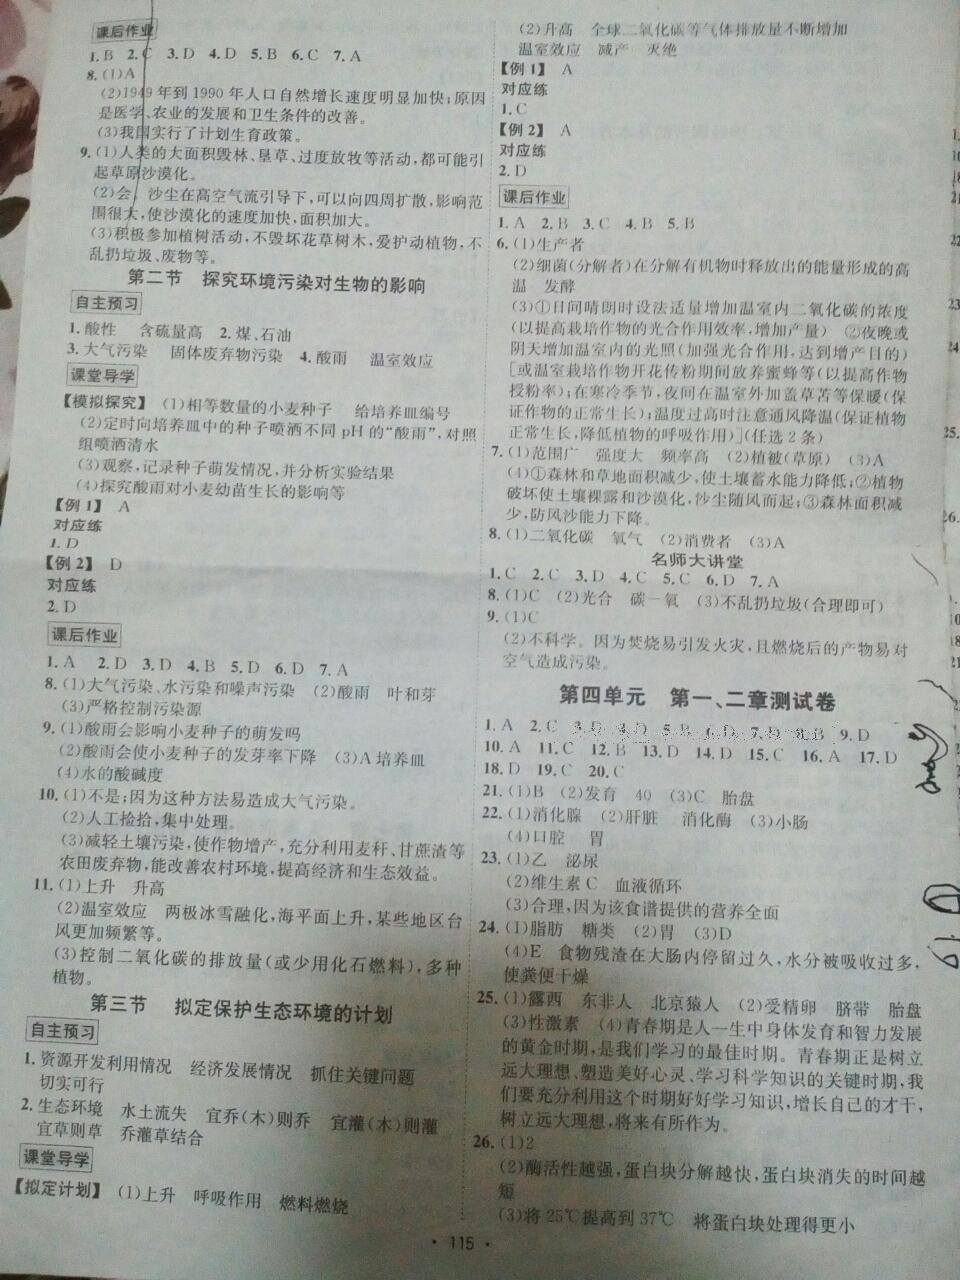 课后作业
1. B 2. C 3. D 4. D 5. B 6. C 7. A
8. (1)A
(2)1949年到1990年人口自然增长速度明显加快;原因
是医学、农业的发展和卫生条件的改善。
(3)我国实行了计划生育政策。
9. (1)人类的大面积毁林、垦草、过度放牧等活动,都可能引
起草原沙漠化。
(2)会。沙尘在高空气流引导下,可以向四周扩散,影响范
围很大,使沙漠化的速度加快,面积加大。
(3)积极参加植树活动,不毁坏花草树木,爱护动植物,不
乱扔垃圾、废物等。
第二节 探究环境污染对生物的影响
自主预习
1. 酸性 含硫量高 2. 煤、石油
3. 大气污染 固体废弃物污染 4. 酸雨 温室效应
课堂导学
【模拟探究】 (1)相等数量的小麦种子 给培养皿编号
(2)定时向培养皿中的种子喷洒不同pH的“酸雨”,对照
组喷洒清水
(3)观察,记录种子萌发情况,并分析实验结果
(4)探究酸雨对小麦幼苗生长的影响等
【例1】 A
对应练
1. D
【例2】 D
对应练
2. D
课后作业
1. A 2. D 3. D 4. B 5. D 6. D 7. A
8. (1)大气污染、水污染和噪声污染 (2)酸雨 叶和芽
(3)严格控制污染源
9. (1)酸雨会影响小麦种子的萌发吗
(2)酸雨会使小麦种子的发芽率下降 (3)A培养皿
(4)水的酸碱度
10. (1)不是;因为这种方法易造成大气污染。
(2)人工捡拾,集中处理。
(3)减轻土壤污染,使作物增产,充分利用麦秆、甘蔗渣等
农田废弃物,能改善农村环境,提高经济和生态效益。
11. (1)上升 升高
(2)温室效应 两极冰雪融化,海平面上升,某些地区台
风更加频繁等。
(3)控制二氧化碳的排放量(或少用化石燃料),多种
植物。
第三节 拟定保护生态环境的计划
自主预习
1. 资源开发利用情况 经济发展情况 抓住关键问题
切实可行
2. 生态环境 水土流失 宜乔(木)则乔 宜灌(木)则灌
宜草则草 乔灌草结合
课堂导学
【拟定计划】 (1)上升 呼吸作用 燃料燃烧
(2)升高 全球二氧化碳等气体排放量不断增加
温室效应 减产 灭绝
【例1】 A
对应练
1. C
【例2】 A
对应练
2. D
课后作业
1. A 2. B 3. C 4. B 5. B
6. (1)生产者
(2)细菌(分解者)在分解有机物时释放出的能量形成的高
温 发酵
(3)①日间晴朗时设法适量增加温室内二氧化碳的浓度
(以提高栽培作物的光合作用效率,增加产量) ②夜晚或
阴天增加温室内的光照(加强光合作用,达到增产目的)
[或温室栽培作物开花传粉期间放养蜜蜂等(以提高作物
授粉率);在寒冷季节,夜间在温室外加盖草苫等保暖(保
证作物的正常生长);温度过高时注意通风降温(保证植物
正常生长,降低植物的呼吸作用)](任选2条)
7. (1)范围广 强度大 频率高 (2)植被(草原) (3)A
(4)①森林和草地面积减少,使土壤蓄水能力降低;②植物
破坏使土壤裸露和沙漠化,沙尘随风而起;③森林面积减
少,防风沙能力下降。
8. (1)二氧化碳 氧气 (2)消费者 (3)A
名师大讲堂
1. C 2. C 3. D 4. C 5. C 6. D 7. A
8. (1)C (2)光合 碳—氧 (3)不乱扔垃圾(合理即可)
9. (1)C
(2)不科学。因为焚烧易引发火灾,且燃烧后的产物易对
空气造成污染。
第四单元 第一、二章测试卷
1. A 2. C 3. B 4. D 5. B 6. D 7. D 8. B 9. D
10. A 11. C 12. B 13. D 14. D 15. C 16. A 17. D
18. D 19. C 20. C
21. (1)B (2)发育 40 (3)C 胎盘
22. (1)消化腺 (2)肝脏 消化酶 (3)小肠
(4)口腔 胃
23. (1)乙 泌尿
(2)维生素C 血液循环
(3)合理,因为该食谱提供的营养全面
24. (1)脂肪 糖类 (2)胃 (3)D
(4)E 食物残渣在大肠内停留过久,水分被吸收过多,
使粪便干燥
25. (1)露西 东非人 北京猿人 (2)受精卵 脐带 胎盘
(3)性激素 (4)青春期是人一生中身体发育和智力发展
的黄金时期,是我们学习的最佳时期。青春期正是树立
远大理想、塑造美好心灵、学习科学知识的关键时期,我
们要充分利用这个时期好好学习知识,增长自己的才干,
树立远大理想,将来有所作为。
26. (1)2
(2)酶活性越强,蛋白块分解越快,蛋白块消失的时间越
短
(3)将25℃提高到37℃ 将蛋白块处理得更小
· 115 ·